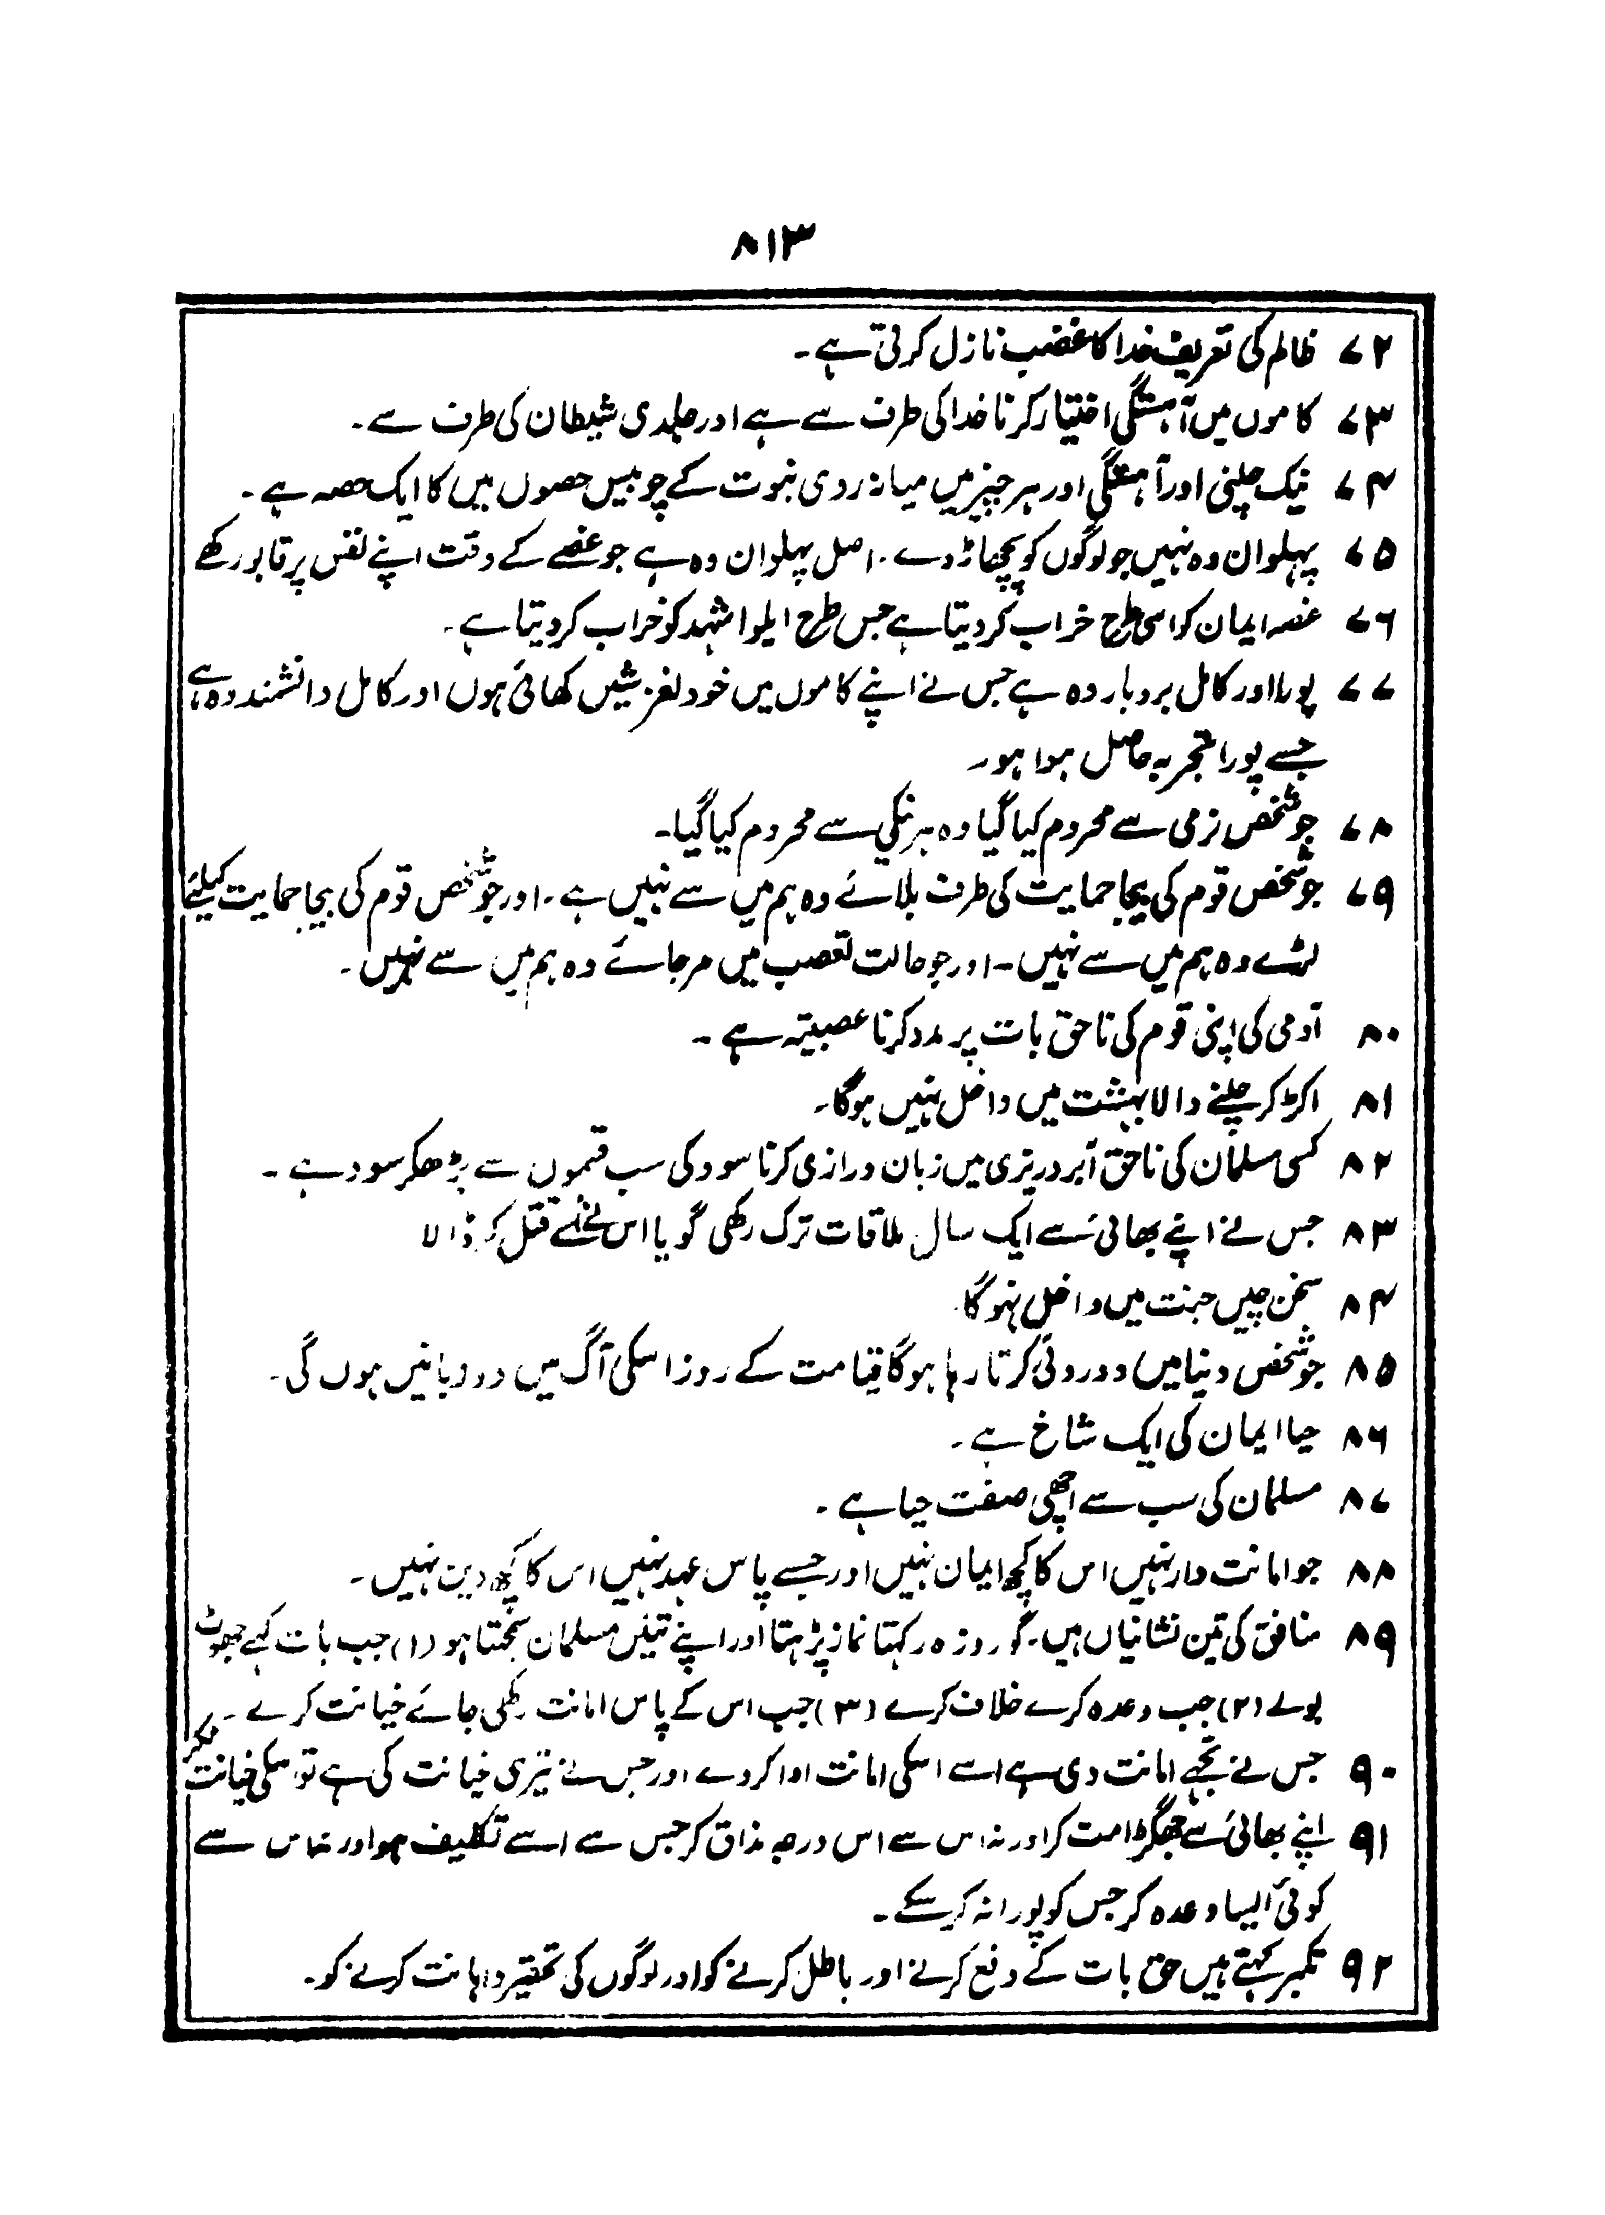 ۸۱۳
۷۲ ظالم کی تعریف خدا کا غضب نازل کرتی ہے۔
۷۳ کاموں میں آہستگی اختیار کرنا خدا کی طرف سے ہے اور جلدی شیطان کی طرف سے۔
۷۴ نیک چلنی اور آہستگی اور ہر چیز میں میانہ روی نبوت کے چوبیس حصوں میں کا ایک حصہ ہے۔
۷۵ پہلوان وہ نہیں جو لوگوں کو پچھاڑ دے۔ اصل پہلوان وہ ہے جو غصے کے وقت اپنے نفس پر قابو رکھے
۷۶ غصہ ایمان کو اسی طرح خراب کر دیتا ہے جس طرح ایلوا شہد کو خراب کر دیتا ہے۔
۷۷ پورا اور کامل بردبار وہ ہے جس نے اپنے کاموں میں خود لغزشیں کھائی ہوں اور کامل دانشمند وہ ہے
جسے پورا تجربہ حاصل ہوا ہو۔
۷۸ جو شخص نرمی سے محروم کیا گیا وہ ہر نیکی سے محروم کیا گیا۔
۷۹ جو شخص قوم کی بیجا حمایت کی طرف بلائے وہ ہم میں سے نہیں ہے۔ اور جو شخص قوم کی بیجا حمایت کیلئے
لڑے وہ ہم میں سے نہیں۔ اور جو حالت تعصب میں مر جائے وہ ہم میں سے نہیں۔
۸۰ آدمی کی اپنی قوم کی ناحق بات پر مدد کرنا عصبیتہ ہے۔
۸۱ اکڑ کر چلنے والا بہشت میں داخل نہیں ہوگا۔
۸۲ کسی مسلمان کی ناحق آبروریزی میں زبان درازی کرنا سود کی سب قسموں سے بڑھکر سود ہے۔
۸۳ جس نے اپنے بھائی سے ایک سال ملاقات ترک رکھی گویا اس نے اسے قتل کر ڈالا
۸۴ سخن چیں جنت میں داخل نہوگا
۸۵ جو شخص دنیا میں دو روئی کرتا رہا ہوگا قیامت کے روز اسکی آگ میں دو زبانیں ہوں گی۔
۸۶ حیا ایمان کی ایک شاخ ہے۔
۸۷ مسلمان کی سب سے اچھی صفت حیا ہے۔
۸۸ جو امانت دار نہیں اس کا کچھ ایمان نہیں اور جسے پاس عہد نہیں اس کا کچھ دین نہیں۔
۸۹ منافق کی تین نشانیاں ہیں۔ گو روزہ رکہتا نماز پڑہتا اور اپنے تئیں مسلمان سمجہتا ہو (۱) جب بات کہے جھوٹ
بولے (۲) جب وعدہ کرے خلاف کرے (۳) جب اس کے پاس امانت رکھی جائے خیانت کرے۔
۹۰ جس نے تجھے امانت دی ہے اسے اسکی امانت ادا کر دے اور جس نے تیری خیانت کی ہے تو اسکی خیانت مت کر
۹۱ اپنے بھائی سے جھگڑا مت کر اور نہ اس سے اس درجہ مذاق کر جس سے اسے تکلیف ہو اور نہ اس سے
کوئی ایسا وعدہ کر جس کو پورا نہ کر سکے۔
۹۲ تکبر کہتے ہیں حق بات کے دفع کرنے اور باطل کرنے کو اور لوگوں کی تحقیر و اہانت کرنے کو۔